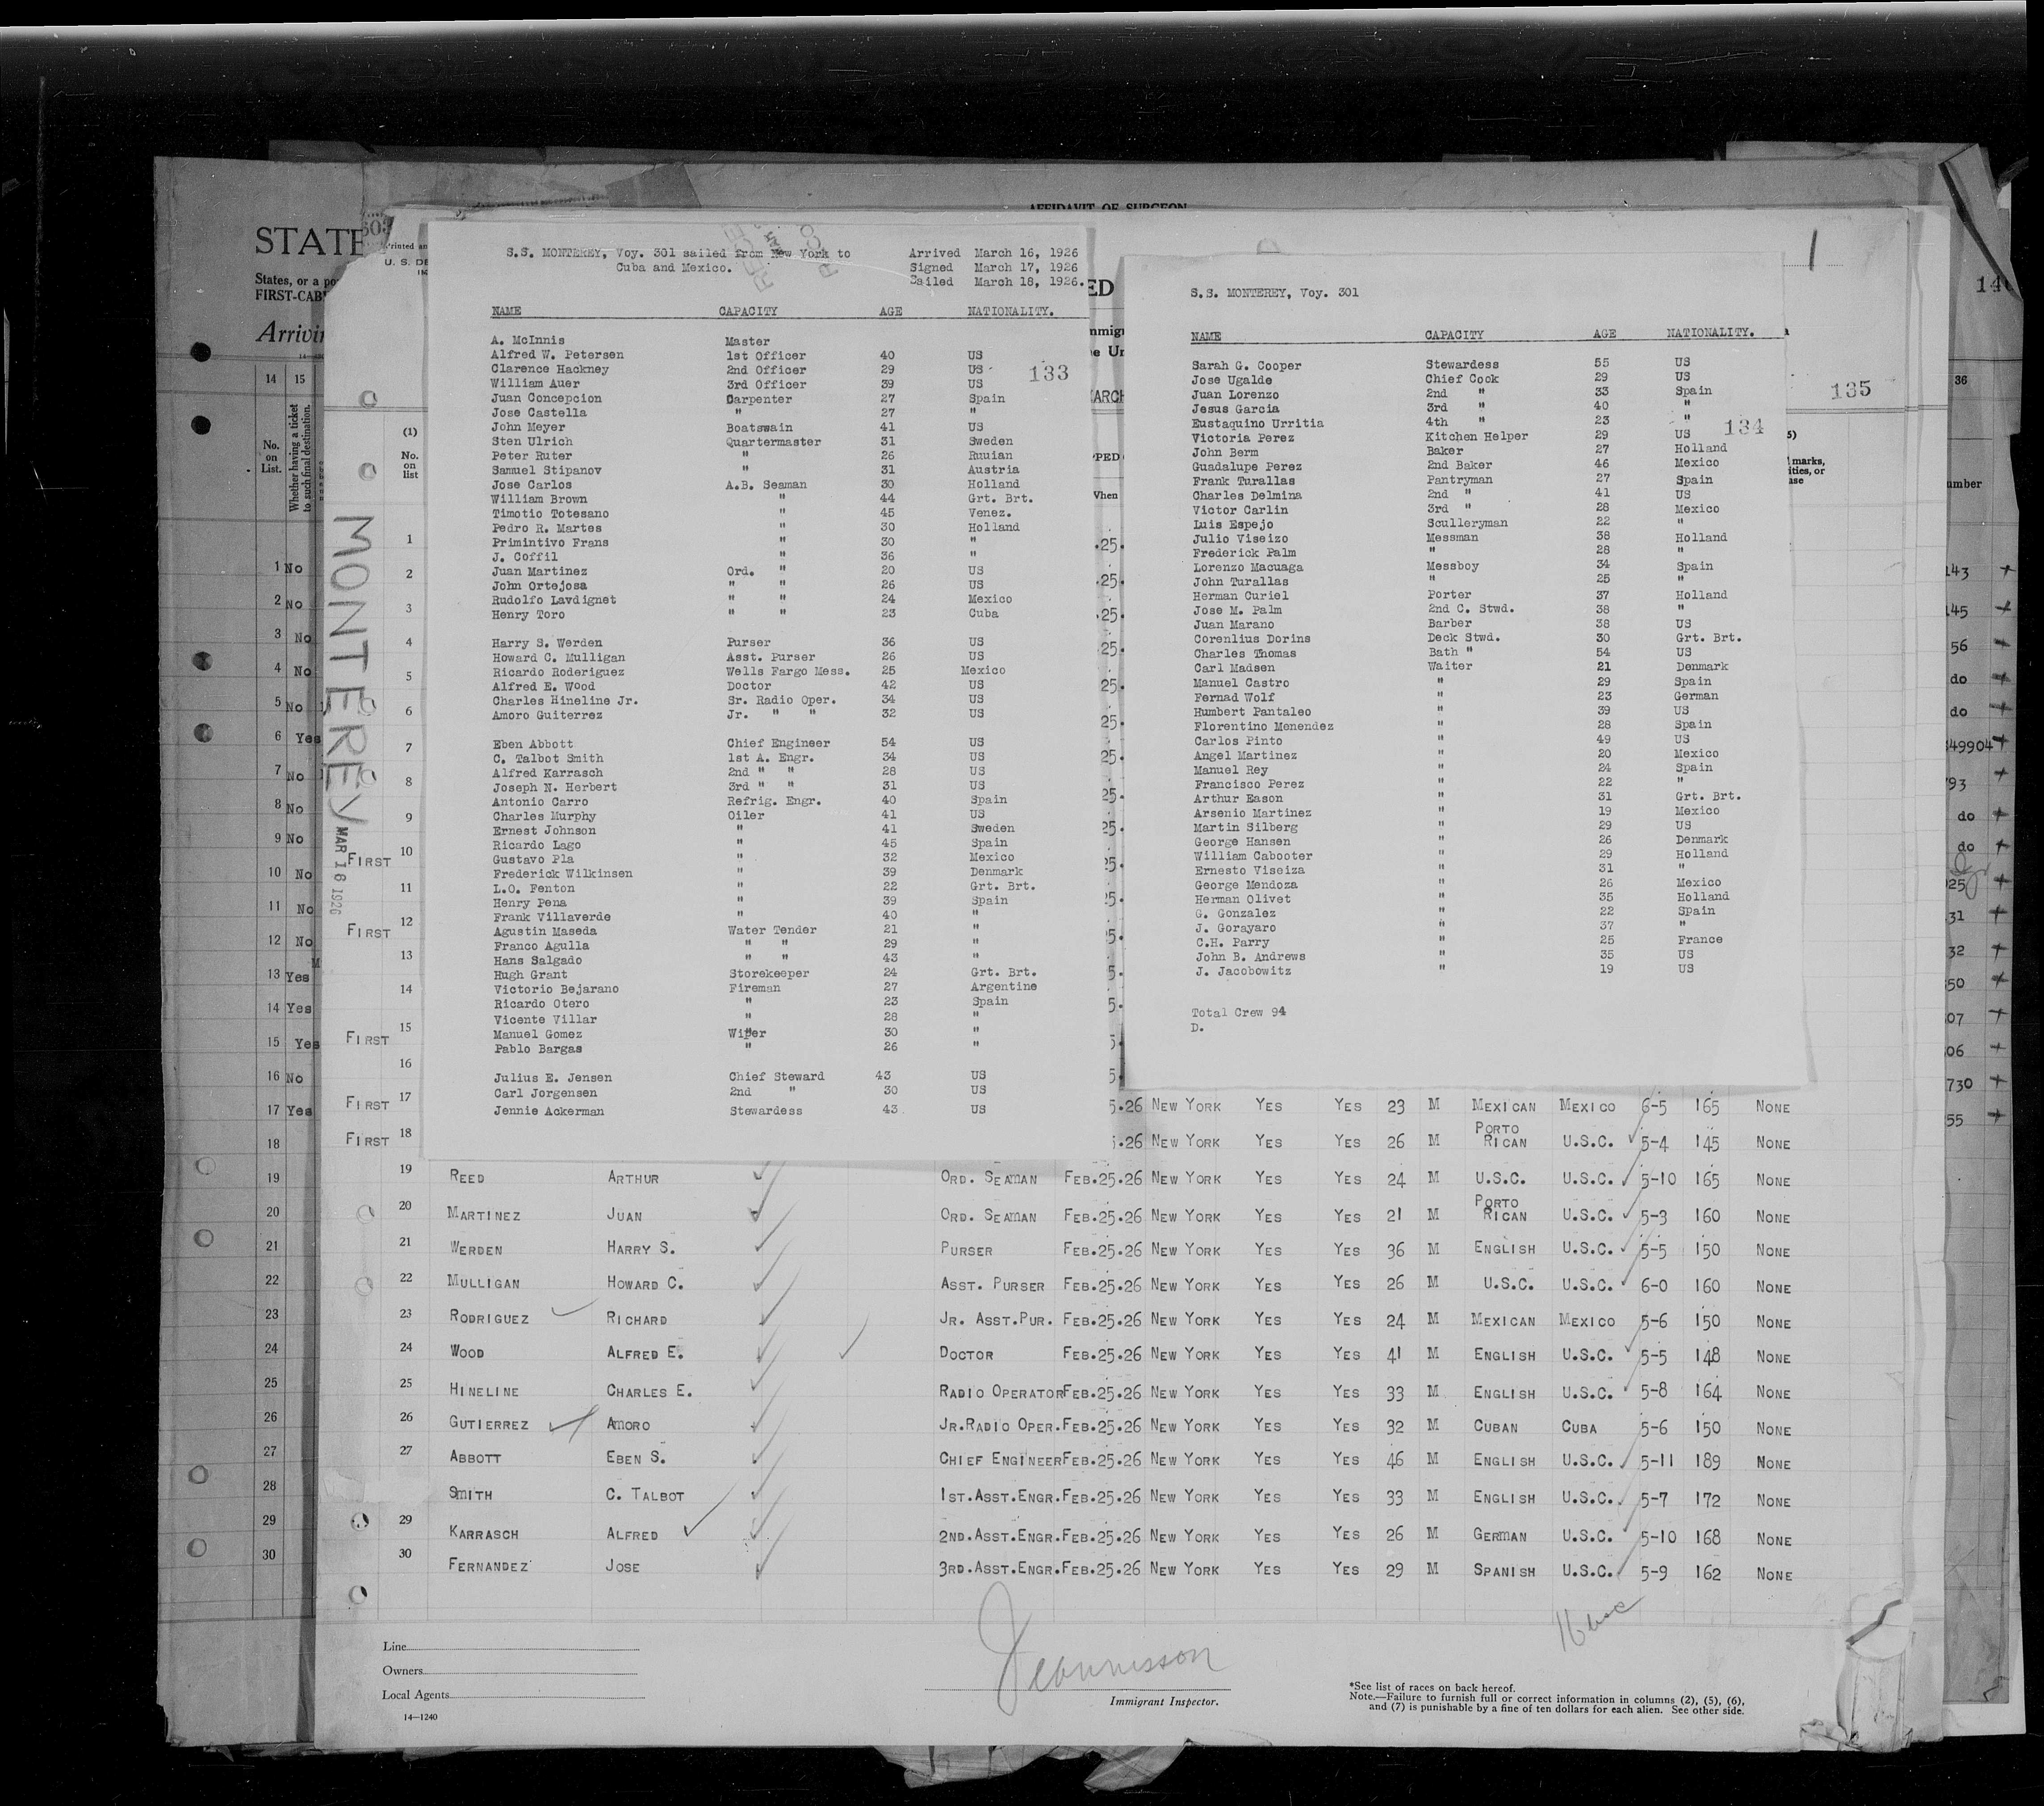 STATE
States, or a po
FIRST-CAB
Arrivin
14 15
No. on List.
Whether having a ticket to such final destination.
1 No
2 No
3 No
4 No
5 No
6 Yes
7 No
8 No
9 No
10 No
11 No
12 No
13 Yes
14 Yes
15 Yes
16 No
17 Yes
18
19
20
21
22
23
24
25
26
27
28
29
30
MONTEREY
MAR 16 1926
AFFIDAVIT OF SURGEON
S.S. MONTEREY, Voy. 301 sailed from New York to Arrived March 16, 1926
Cuba and Mexico. Signed March 17, 1926
Sailed March 18, 1926.
NAME CAPACITY AGE NATIONALITY.
133
A. McInnis Master
Alfred W. Petersen 1st Officer 40 US
Clarence Hackney 2nd Officer 29 US
William Auer 3rd Officer 39 US
Juan Concepcion Carpenter 27 Spain
Jose Castella " 27 "
John Meyer Boatswain 41 US
Sten Ulrich Quartermaster 31 Sweden
Peter Ruter " 26 Ruuian
Samuel Stipanov " 31 Austria
Jose Carlos A.B. Seaman 30 Holland
William Brown " 44 Grt. Brt.
Timotio Totesano " 45 Venez.
Pedro R. Martes " 30 Holland
Primintivo Frans " 30 "
J. Coffil " 36 "
Juan Martinez Ord. " 20 US
John Ortejosa " " 26 US
Rudolfo Lavdignet " " 24 Mexico
Henry Toro " " 23 Cuba
Harry S. Werden Purser 36 US
Howard C. Mulligan Asst. Purser 26 US
Ricardo Roderiguez Wells Fargo Mess. 25 Mexico
Alfred E. Wood Doctor 42 US
Charles Hineline Jr. Sr. Radio Oper. 34 US
Amoro Guiterrez Jr. " " 32 US
Eben Abbott Chief Engineer 54 US
C. Talbot Smith 1st A. Engr. 34 US
Alfred Karrasch 2nd " " 28 US
Joseph N. Herbert 3rd " " 31 US
Antonio Carro Refrig. Engr. 40 Spain
Charles Murphy Oiler 41 US
Ernest Johnson " 41 Sweden
Ricardo Lago " 45 Spain
Gustavo Pla " 32 Mexico
Frederick Wilkinsen " 39 Denmark
L.O. Fenton " 22 Grt. Brt.
Henry Pena " 39 Spain
Frank Villaverde " 40 "
Agustin Maseda Water Tender 21 "
Franco Agulla " " 29 "
Hans Salgado " " 43 "
Hugh Grant Storekeeper 24 Grt. Brt.
Victorio Bejarano Fireman 27 Argentine
Ricardo Otero " 23 Spain
Vicente Villar " 28 "
Manuel Gomez Wiper 30 "
Pablo Bargas " 26 "
Julius E. Jensen Chief Steward 43 US
Carl Jorgensen 2nd " 30 US
Jennie Ackerman Stewardess 43 US
S.S. MONTEREY, Voy. 301
NAME CAPACITY AGE NATIONALITY.
134
135
Sarah G. Cooper Stewardess 55 US
Jose Ugalde Chief Cook 29 US
Juan Lorenzo 2nd " 33 Spain
Jesus Garcia 3rd " 40 "
Eustaquino Urritia 4th " 23 "
Victoria Perez Kitchen Helper 29 US
John Berm Baker 27 Holland
Guadalupe Perez 2nd Baker 46 Mexico
Frank Turallas Pantryman 27 Spain
Charles Delmina 2nd " 41 US
Victor Carlin 3rd " 28 Mexico
Luis Espejo Sculleryman 22 "
Julio Viseizo Messman 38 Holland
Frederick Palm " 28 "
Lorenzo Macuaga Messboy 34 Spain
John Turallas " 25 "
Herman Curiel Porter 37 Holland
Jose M. Palm 2nd C. Stwd. 38 "
Juan Marano Barber 38 US
Corenlius Dorins Deck Stwd. 30 Grt. Brt.
Charles Thomas Bath " 54 US
Carl Madsen Waiter 21 Denmark
Manuel Castro " 29 Spain
Fernad Wolf " 23 German
Humbert Pantaleo " 39 US
Florentino Menendez " 28 Spain
Carlos Pinto " 49 US
Angel Martinez " 20 Mexico
Manuel Rey " 24 Spain
Francisco Perez " 22 "
Arthur Eason " 31 Grt. Brt.
Arsenio Martinez " 19 Mexico
Martin Silberg " 29 US
George Hansen " 26 Denmark
William Cabooter " 29 Holland
Ernesto Viseiza " 31 "
George Mendoza " 26 Mexico
Herman Olivet " 35 Holland
G. Gonzalez " 22 Spain
J. Gorayaro " 37 "
C.H. Parry " 25 France
John B. Andrews " 35 US
J. Jacobowitz " 19 US
Total Crew 94
D.
FIRST 17 5.26 NEW YORK YES YES 23 M MEXICAN MEXICO 6-5 165 NONE
FIRST 18 5.26 NEW YORK YES YES 26 M PORTO RICAN U.S.C. 5-4 145 NONE
19 REED ARTHUR ORD. SEAMAN FEB.25.26 NEW YORK YES YES 24 M U.S.C. U.S.C. 5-10 165 NONE
20 MARTINEZ JUAN ORD. SEAMAN FEB.25.26 NEW YORK YES YES 21 M PORTO RICAN U.S.C. 5-3 160 NONE
21 WERDEN HARRY S. PURSER FEB.25.26 NEW YORK YES YES 36 M ENGLISH U.S.C. 5-5 150 NONE
22 MULLIGAN HOWARD C. ASST. PURSER FEB.25.26 NEW YORK YES YES 26 M U.S.C. U.S.C. 6-0 160 NONE
23 RODRIGUEZ RICHARD JR. ASST.PUR. FEB.25.26 NEW YORK YES YES 24 M MEXICAN MEXICO 5-6 150 NONE
24 WOOD ALFRED E. DOCTOR FEB.25.26 NEW YORK YES YES 41 M ENGLISH U.S.C. 5-5 148 NONE
25 HINELINE CHARLES E. RADIO OPERATOR FEB.25.26 NEW YORK YES YES 33 M ENGLISH U.S.C. 5-8 164 NONE
26 GUTIERREZ AMORO JR.RADIO OPER. FEB.25.26 NEW YORK YES YES 32 M CUBAN CUBA 5-6 150 NONE
27 ABBOTT EBEN S. CHIEF ENGINEER FEB.25.26 NEW YORK YES YES 46 M ENGLISH U.S.C. 5-11 189 NONE
28 SMITH C. TALBOT 1ST.ASST.ENGR. FEB.25.26 NEW YORK YES YES 33 M ENGLISH U.S.C. 5-7 172 NONE
29 KARRASCH ALFRED 2ND.ASST.ENGR. FEB.25.26 NEW YORK YES YES 26 M GERMAN U.S.C. 5-10 168 NONE
30 FERNANDEZ JOSE 3RD.ASST.ENGR. FEB.25.26 NEW YORK YES YES 29 M SPANISH U.S.C. 5-9 162 NONE
Line
Owners
Local Agents
14—1240
Immigrant Inspector.
*See list of races on back hereof.
Note.—Failure to furnish full or correct information in columns (2), (5), (6),
and (7) is punishable by a fine of ten dollars for each alien. See other side.